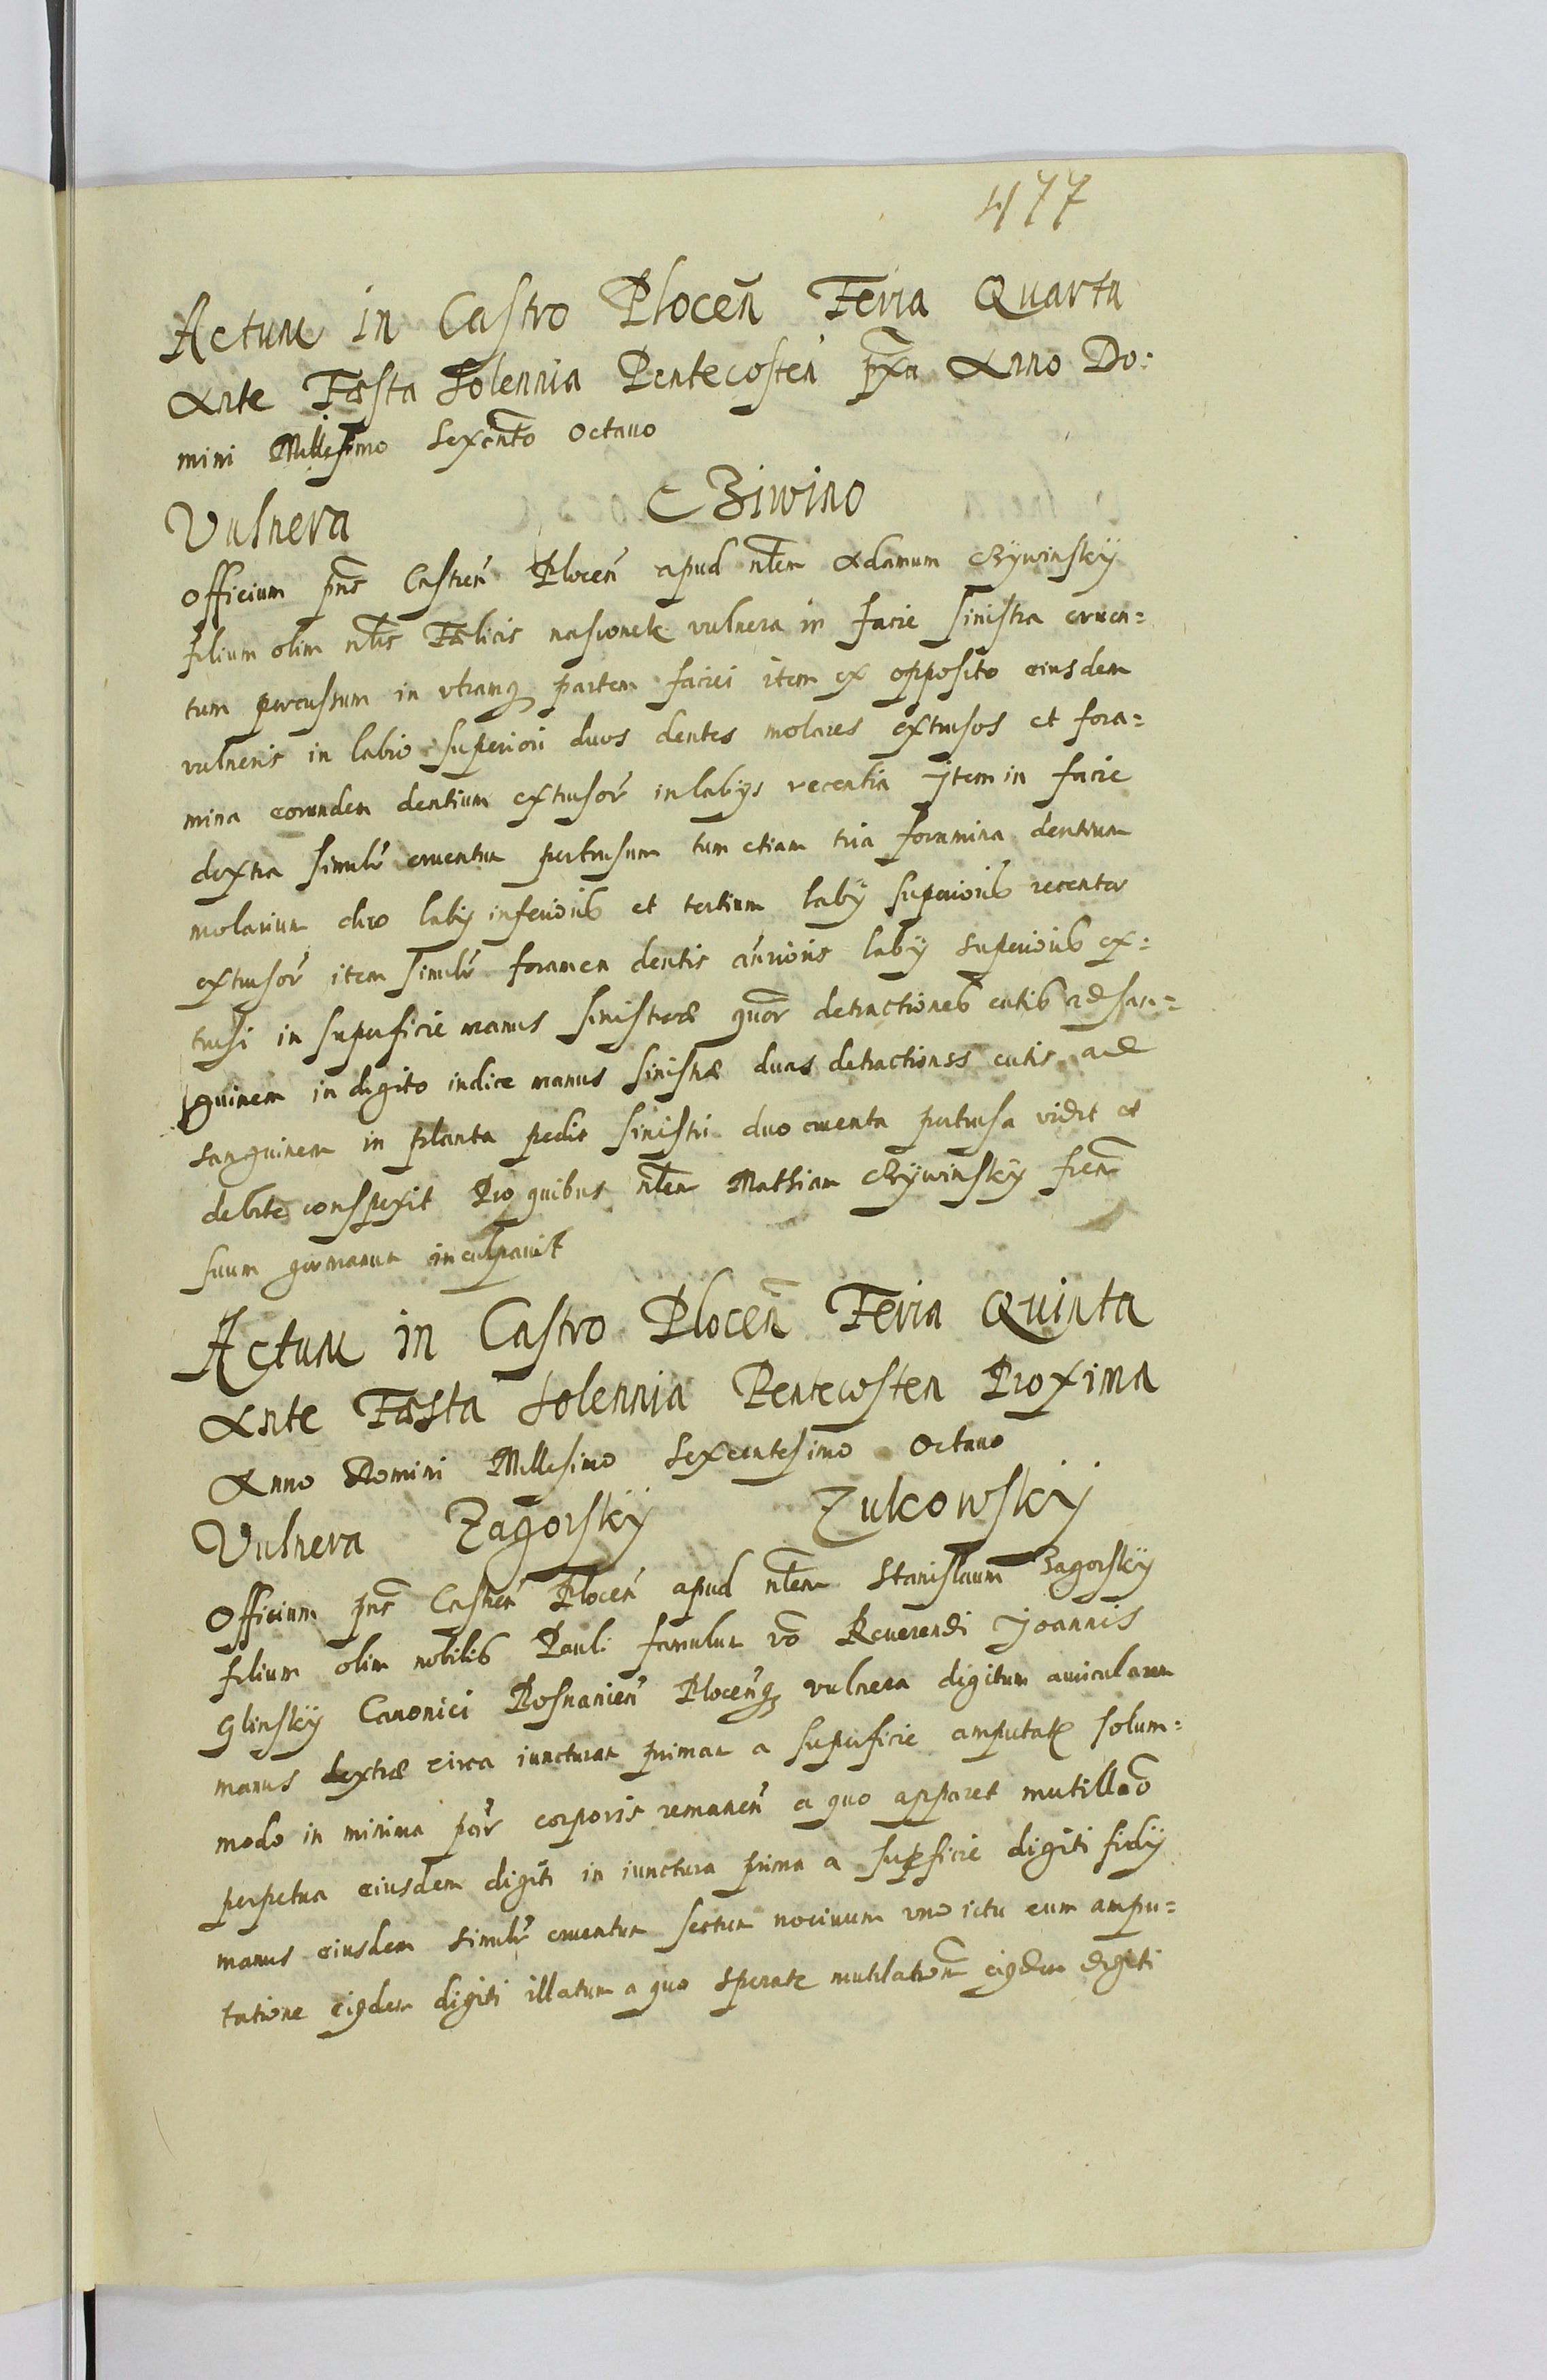 477
Actum in Castro Plocen̄ Feria Quarta
Ante Fæsta Solennia Pentecosten̄ pxa Anno Do:
mini Millesimo Sexcento Octauo
Vulnera CZiwino
Officium pns Castren̄ Plocen̄ apud nblem Adamum CZywinskÿ
filium olim nblis Fælicis vulnera in facie sinistra cruen=
tum percussum in vtramq partem faciei item ex opposito eiusdem
vulneris in labio superiori duos dentes molares extrusos et fora=
mina eorundem dentium extrusor in labÿs recentia Item in facie
dextra similr cruentum pertusum tum etiam tria foramina dentium
molarium duo labÿ inferioris et tertium labÿ superioris recenter
extrusor item similr foramen dentis labÿ superioris ex=
trusi in superficie manus sinistræ quor detractiones cutis ad san=
guinem in digito indice manus sinistræ duas detractiones cutis ad
sanguinem in planta pedis sinistri duo cruenta pertusa vidit et
debite conspexit Pro quibus nblem Mathiam CZywinskÿ frem
suum germanum inculpauit
Actum in Castro Plocen̄ Feria Quinta
Ante Fæsta Solennia Pentecosten Proxima
Anno Domini Millesimo Sexcentesimo Octauo
Vulnera Zagorskÿ Zulcowskÿ
Officium pns Castren̄ Plocen̄ apud nblem Stanislaum Zagorskÿ
filium olim nobilis Pauli famulum Reuerendi Joannis
Glinskÿ Canonici Posnanien̄ Plocen̄q vulnera digitum auricularem
manus dextræ circa iuncturam primam a superficie amputat solum=
modo in minima corporis remanen̄ a quo apparet mutillao
perpetua eiusdem digiti in iunctura prima a superficie digiti
manus eiusdem similr cruentum sectum nociuum vno ictu cum ampu=
tatione eiqdem digiti illatum a quo sperat mutilationem eiqdem digiti